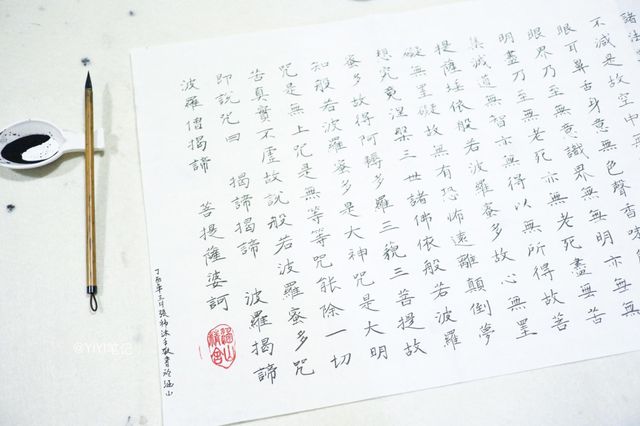 諸法
不減是故空中無
眼耳鼻舌身意無色聲香味
眼界乃至無意識界無無明亦無無
明盡乃至無老死亦無老死盡無苦
集滅道無智亦無得以無所得故菩
提薩埵依般若波羅蜜多故心無罣
礙無罣礙故無有恐怖遠離顛倒夢
想究竟涅槃三世諸佛依般若波羅
蜜多故得阿耨多羅三藐三菩提故
知般若波羅蜜多是大神咒是大明
咒是無上咒是無等等咒能除一切
苦真實不虛故說般若波羅蜜多咒
即說咒曰 揭諦揭諦 波羅揭諦
波羅僧揭諦 菩提薩婆訶
丁酉年三月張 手敬書於涵山
@YIYI笔记